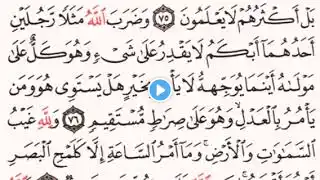 بَلْ أَكْثَرُهُمْ لَا يَعْلَمُونَ ٧٥ وَضَرَبَ اللَّهُ مَثَلًا رَّجُلَيْنِ
أَحَدُهُمَا أَبْكَمُ لَا يَقْدِرُ عَلَىٰ شَيْءٍ وَهُوَ كَلٌّ عَلَىٰ
مَوْلَىٰهُ أَيْنَمَا يُوَجِّههُّ لَا يَأْتِ بِخَيْرٍ هَلْ يَسْتَوِي هُوَ وَمَن
يَأْمُرُ بِالْعَدْلِ وَهُوَ عَلَىٰ صِرَٰطٍ مُّسْتَقِيمٍ ٧٦ وَلِلَّهِ غَيْبُ
السَّمَٰوَٰتِ وَالْأَرْضِ وَمَا أَمْرُ السَّاعَةِ إِلَّا كَلَمْحِ الْبَصَرِ